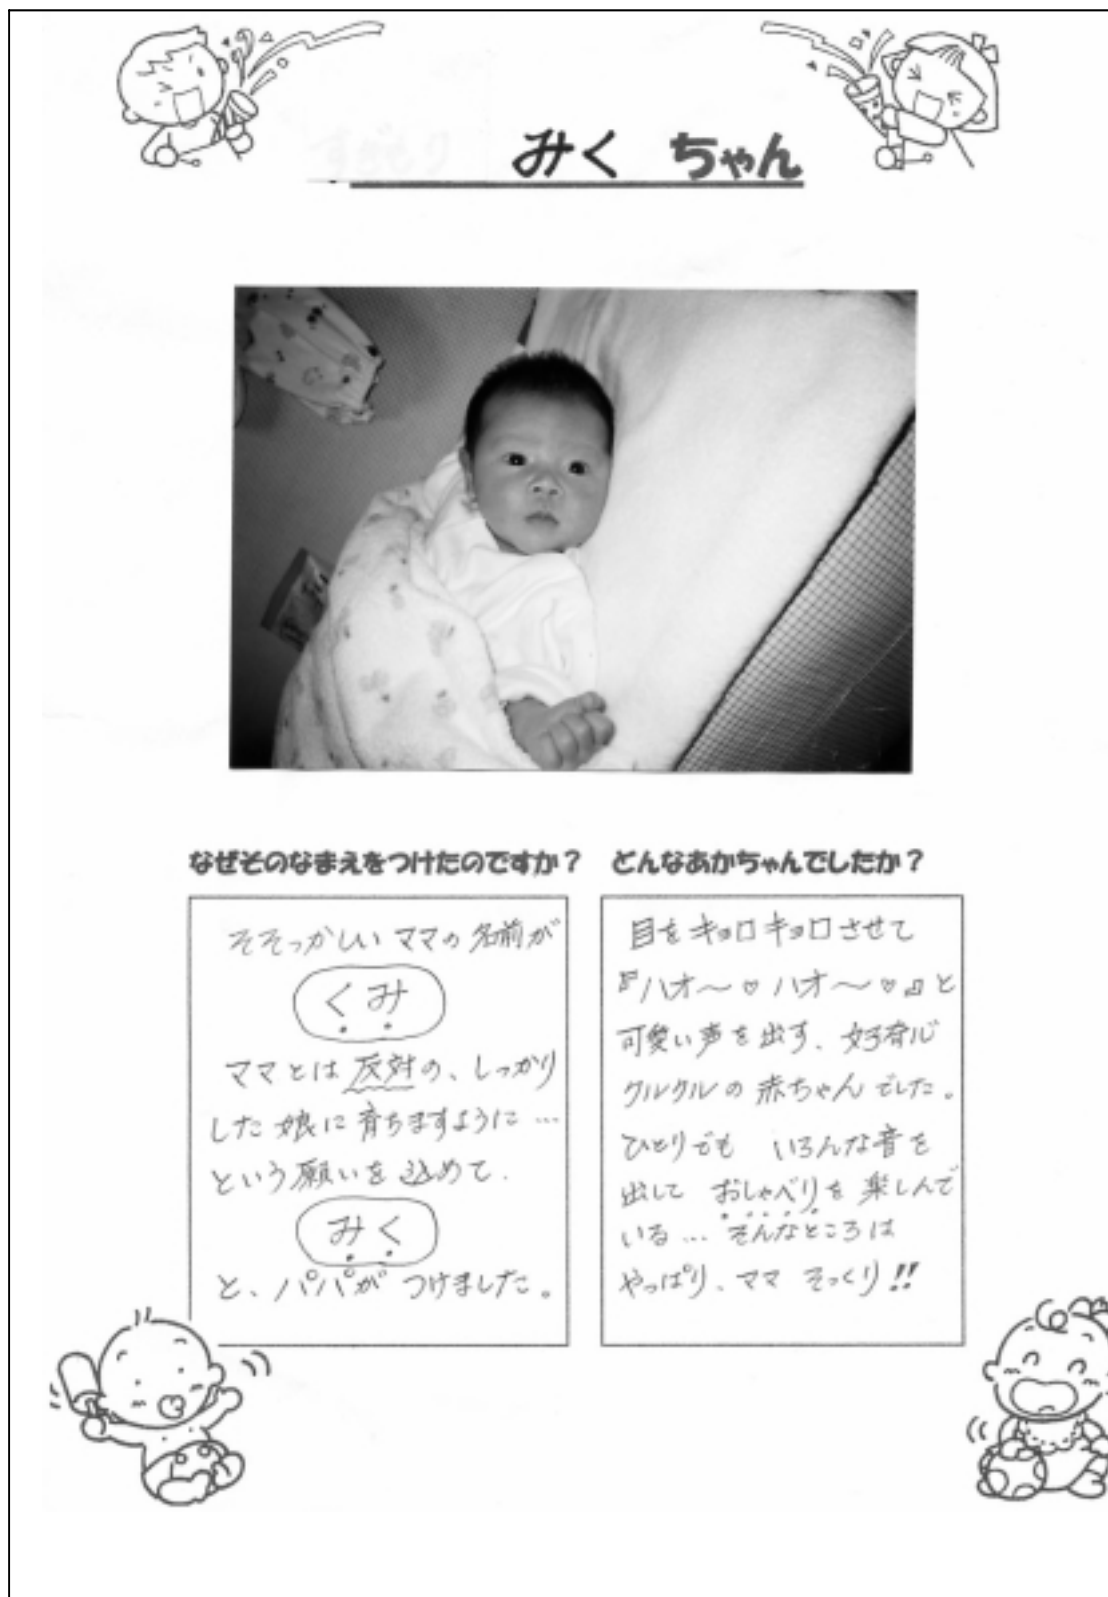 みく ちゃん
なぜそのなまえをつけたのですか?
そそっかしい ママの名前が
くみ
ママとは反対の、しっかり
した娘に育ちますように…
という願いを込めて.
みく
と、パパが つけました。
どんなあかちゃんでしたか?
目をキョロキョロさせて
『ハオ〜♡ハオ〜♡』と
可愛い声を出す、好奇心
クルクルの赤ちゃんでした。
ひとりでも いろんな音を
出して おしゃべりを楽しんで
いる… そんなところは
やっぱり、ママ そっくり!!